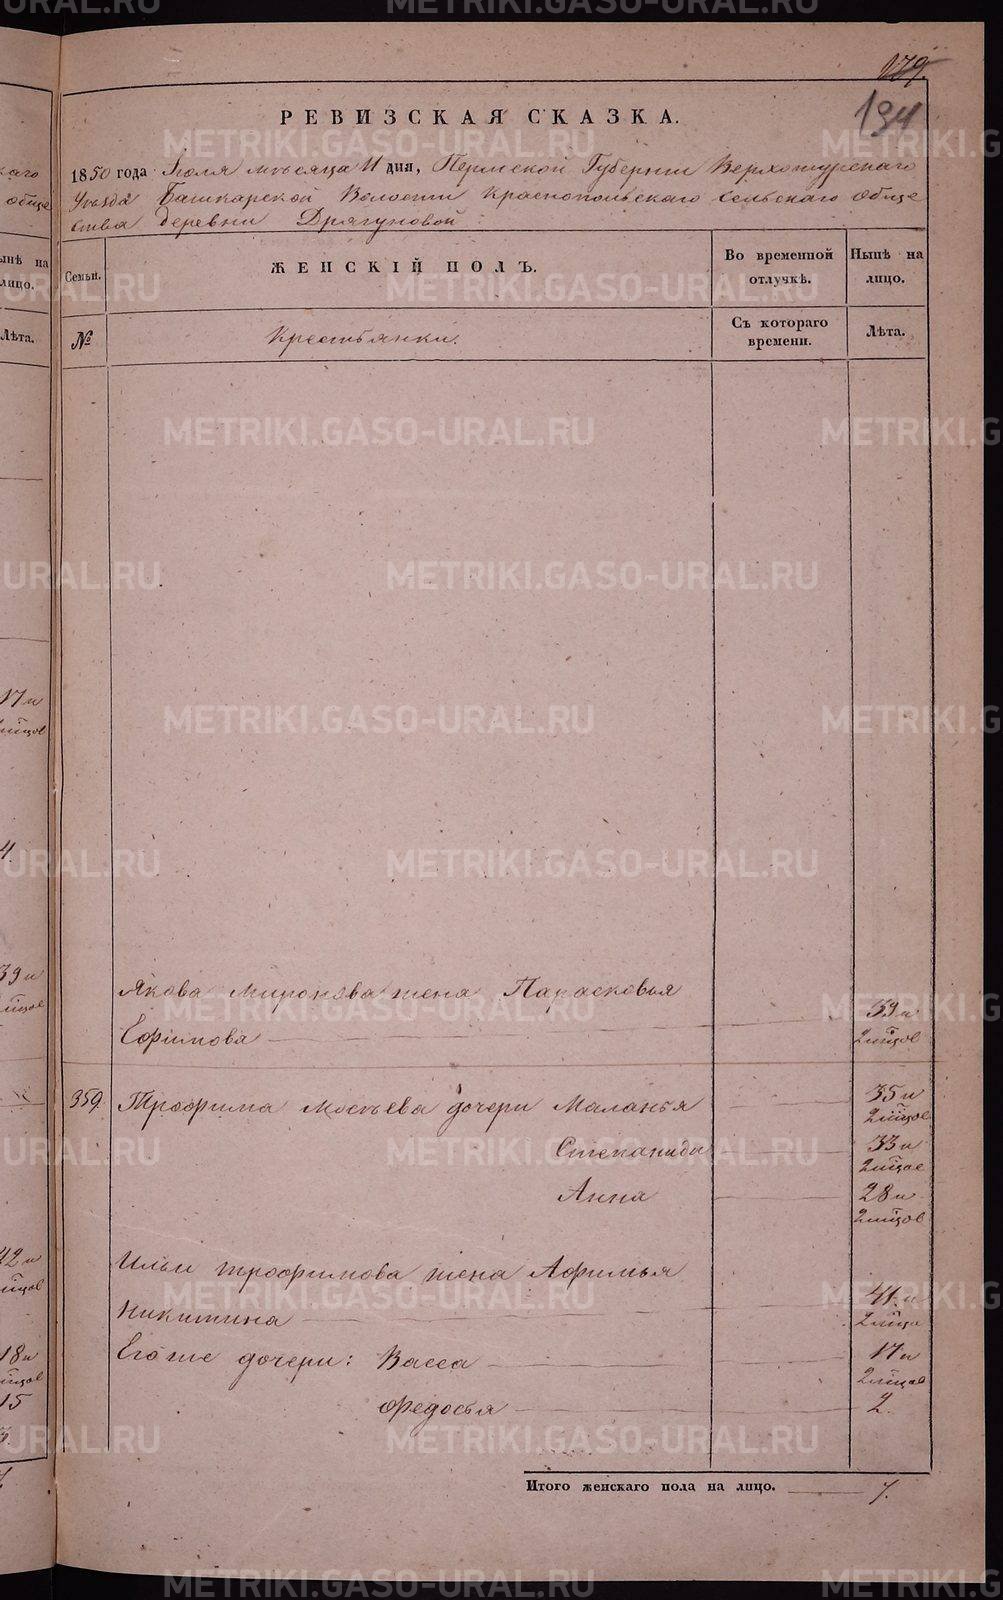 179.
194
РЕВИЗСКАЯ СКАЗКА.
1850 года Іюля мѣсяца 11 дня, Пермской Губерніи Верхотурскаго
Уѣзда Башкарской Волости Краснопольскаго сельскаго обще
ства деревни Драгуновой
Семьи.
ЖЕНСКІЙ ПОЛЪ.
Во временной отлучкѣ.
Нынѣ на лицо.
№
Крестьянки.
Съ котораго времени.
Лѣта.
Якова Миронова жена Парасковья
Ефимова 39 и
2 мѣсцов
359. Трофима Мосѣева дочери Маланья 35 и
2 мѣсцов
Степанида 33 и
2 мѣсцов
Анна 28 и
2 мѣсцов
Ильи Трофимова жена Афимья
Никитина 41 и
2 мѣсца
Его же дочери: Васса 17 и
2 мѣсцов
Федосья 2.
Итого женскаго пола на лицо. 7.
ынѣ на
лицо.
Лѣта.
17 и
4.
39 и
42 и
18 и
15
METRIKI.GASO-URAL.RU